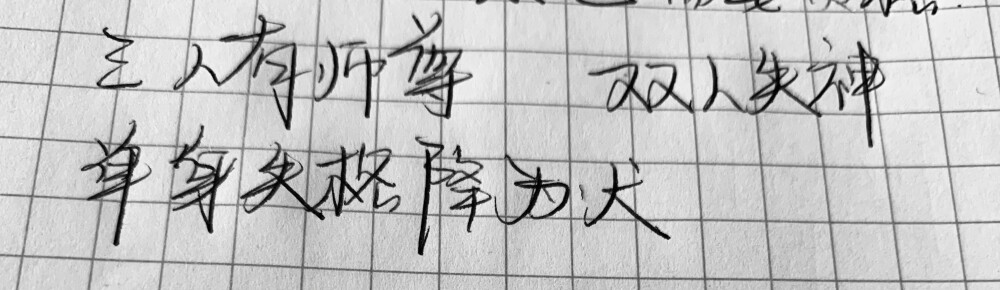 三人有师尊 双人失神
单身失格降为犬